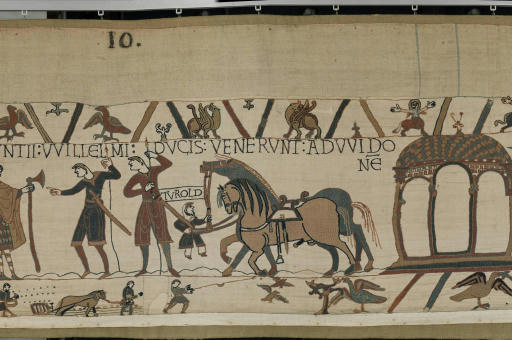 10.
NTII: VVILLELMI: DVCIS: VENERVNT: AD VVIDO
NĒ
TVROLD